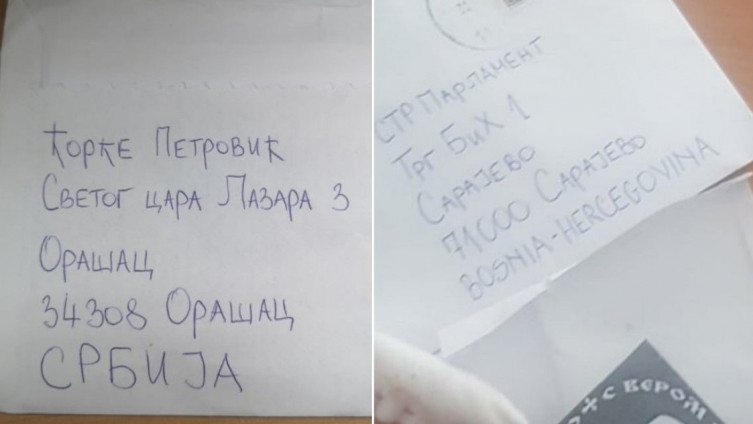 Ђорђе Петровић
Светог цара Лазара 3
Орашац
34308 Орашац
СРБИЈА
СТР Парламент
Трг БиХ 1
Сарајево
71000 Сарајево
BOSNIA-HERCEGOVINA
С ВЕРОМ